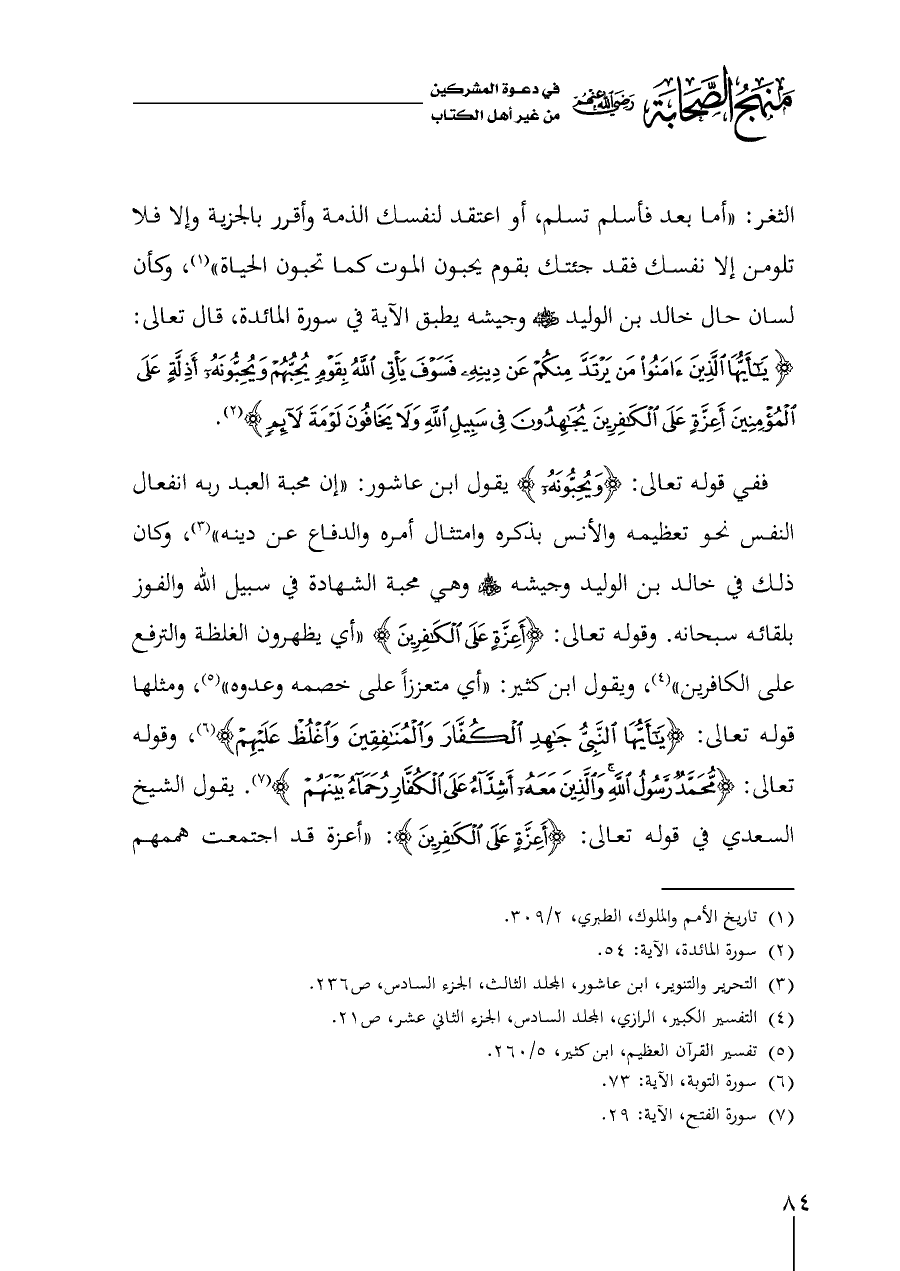 منهج الصحابة رضي الله عنهم في دعوة المشركين
من غير أهل الكتاب
الثغر: «أما بعد فأسلم تسلم، أو اعتقد لنفسك الذمة وأقرر بالجزية وإلا فلا
تلومن إلا نفسك فقد جئتك بقوم يحبون الموت كما تحبون الحياة»(١)، وكأن
لسان حال خالد بن الوليد ﷺ وجيشه يطبق الآية في سورة المائدة، قال تعالى:
﴿ يَـٰٓأَيُّهَا ٱلَّذِينَ ءَامَنُوا۟ مَن يَرْتَدَّ مِنكُمْ عَن دِينِهِۦ فَسَوْفَ يَأْتِى ٱللَّهُ بِقَوْمٍ يُحِبُّهُمْ وَيُحِبُّونَهُۥٓ أَذِلَّةٍ عَلَى
ٱلْمُؤْمِنِينَ أَعِزَّةٍ عَلَى ٱلْكَـٰفِرِينَ يُجَـٰهِدُونَ فِى سَبِيلِ ٱللَّهِ وَلَا يَخَافُونَ لَوْمَةَ لَآئِمٍ ﴾(٢).
ففي قوله تعالى: ﴿وَيُحِبُّونَهُۥٓ ﴾ يقول ابن عاشور: «إن محبة العبد ربه انفعال
النفس نحو تعظيمه والأنس بذكره وامتثال أمره والدفاع عن دينه»(٣)، وكان
ذلك في خالد بن الوليد وجيشه وهي محبة الشهادة في سبيل الله والفوز
بلقائه سبحانه. وقوله تعالى: ﴿أَعِزَّةٍ عَلَى ٱلْكَـٰفِرِينَ ﴾ «أي يظهرون الغلظة والترفع
على الكافرين»(٤)، ويقول ابن كثير: «أي متعززاً على خصمه وعدوه»(٥)، ومثلها
قوله تعالى: ﴿يَـٰٓأَيُّهَا ٱلنَّبِىُّ جَـٰهِدِ ٱلْكُفَّارَ وَٱلْمُنَـٰفِقِينَ وَٱغْلُظْ عَلَيْهِمْ﴾(٦)، وقوله
تعالى: ﴿مُّحَمَّدٌ رَّسُولُ ٱللَّهِ ۚ وَٱلَّذِينَ مَعَهُۥٓ أَشِدَّآءُ عَلَى ٱلْكُفَّارِ رُحَمَآءُ بَيْنَهُمْ ﴾(٧). يقول الشيخ
السعدي في قوله تعالى: ﴿أَعِزَّةٍ عَلَى ٱلْكَـٰفِرِينَ ﴾: «أعزة قد اجتمعت هممهم
(١) تاريخ الأمم والملوك، الطبري، ٣٠٩/٢.
(٢) سورة المائدة، الآية: ٥٤.
(٣) التحرير والتنوير، ابن عاشور، المجلد الثالث، الجزء السادس، ص٢٣٦.
(٤) التفسير الكبير، الرازي، المجلد السادس، الجزء الثاني عشر، ص٢١.
(٥) تفسير القرآن العظيم، ابن كثير، ٢٦٠/٥.
(٦) سورة التوبة، الآية: ٧٣.
(٧) سورة الفتح، الآية: ٢٩.
٨٤